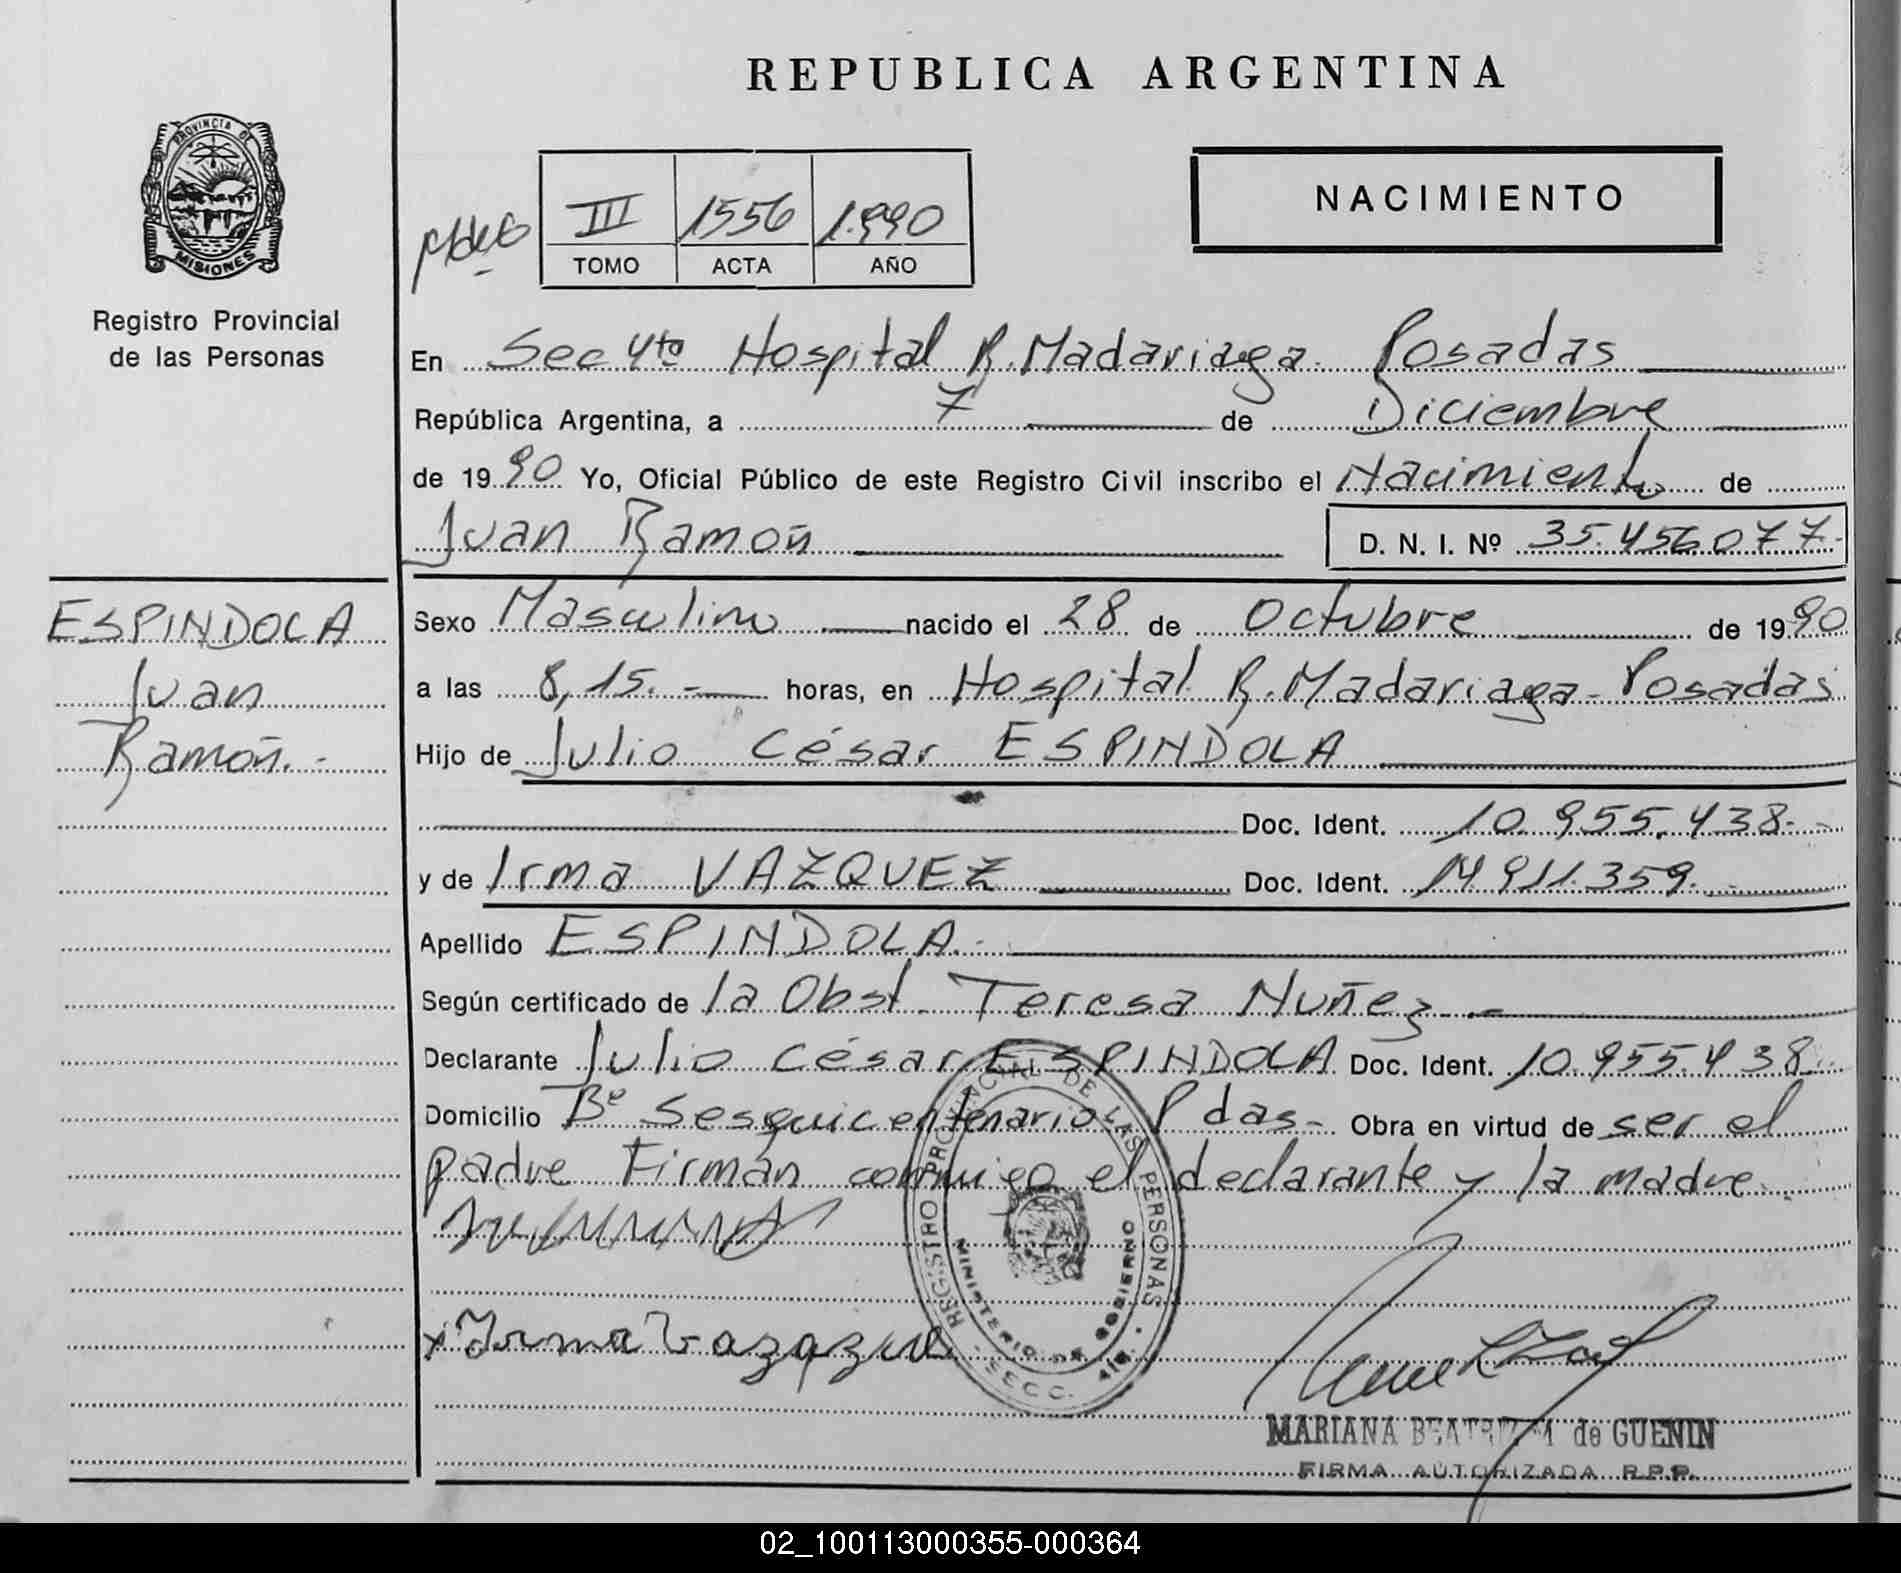 REPUBLICA ARGENTINA
PROVINCIA DE
MISIONES
Registro Provincial
de las Personas
III 1556 1.990
TOMO ACTA AÑO
NACIMIENTO
En Sec 4ta Hospital R. Madariaga. Posadas
República Argentina, a 7 de Diciembre
de 1990 Yo, Oficial Público de este Registro Civil inscribo el Nacimiento de
Juan Ramón D. N. I. Nº 35.456.077.-
ESPINDOLA
Juan
Ramón.-
Sexo Masculino nacido el 28 de Octubre de 1990
a las 8,15.- horas, en Hospital R. Madariaga - Posadas
Hijo de Julio César ESPINDOLA
Doc. Ident. 10.955.438.-
y de Irma VAZQUEZ Doc. Ident. 14.911.359.-
Apellido ESPINDOLA.-
Según certificado de la Obst. Teresa Nuñez.-
Declarante Julio César ESPINDOLA Doc. Ident. 10.955.438.
Domicilio Bº Sesquicentenario Pdas- Obra en virtud de ser el
padre Firmán conmigo el declarante y la madre.
REGISTRO PROVINCIAL DE LAS PERSONAS
MINISTERIO DE GOBIERNO
SECC. 4ta
x Irma Vazqzue
MARIANA BEATRIZ M de GUENIN
FIRMA AUTORIZADA R.P.P.
02_100113000355-000364